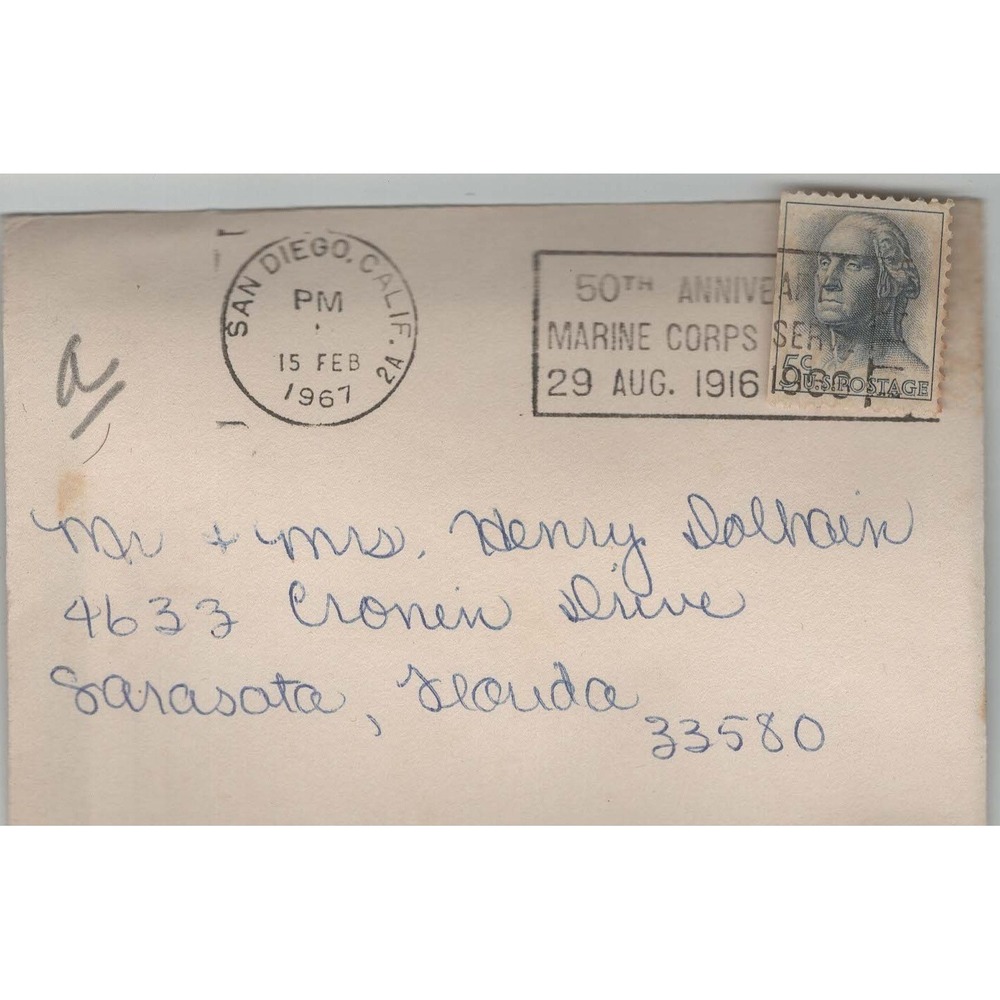 SAN DIEGO, CALIF. 2A
PM
15 FEB
1967
50TH ANNIVE
MARINE CORPS SER
29 AUG. 1916
5c
U.S. POSTAGE
a
Mr + Mrs. Henry Dolhain
4633 Cronin Drive
Sarasota, Florida
33580